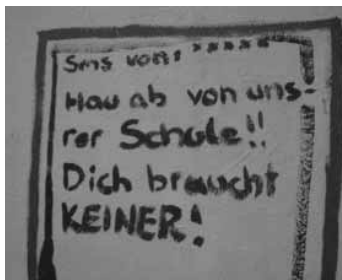 Sms von: *****
Hau ab von uns-
rer Schule!!
Dich braucht
KEINER!